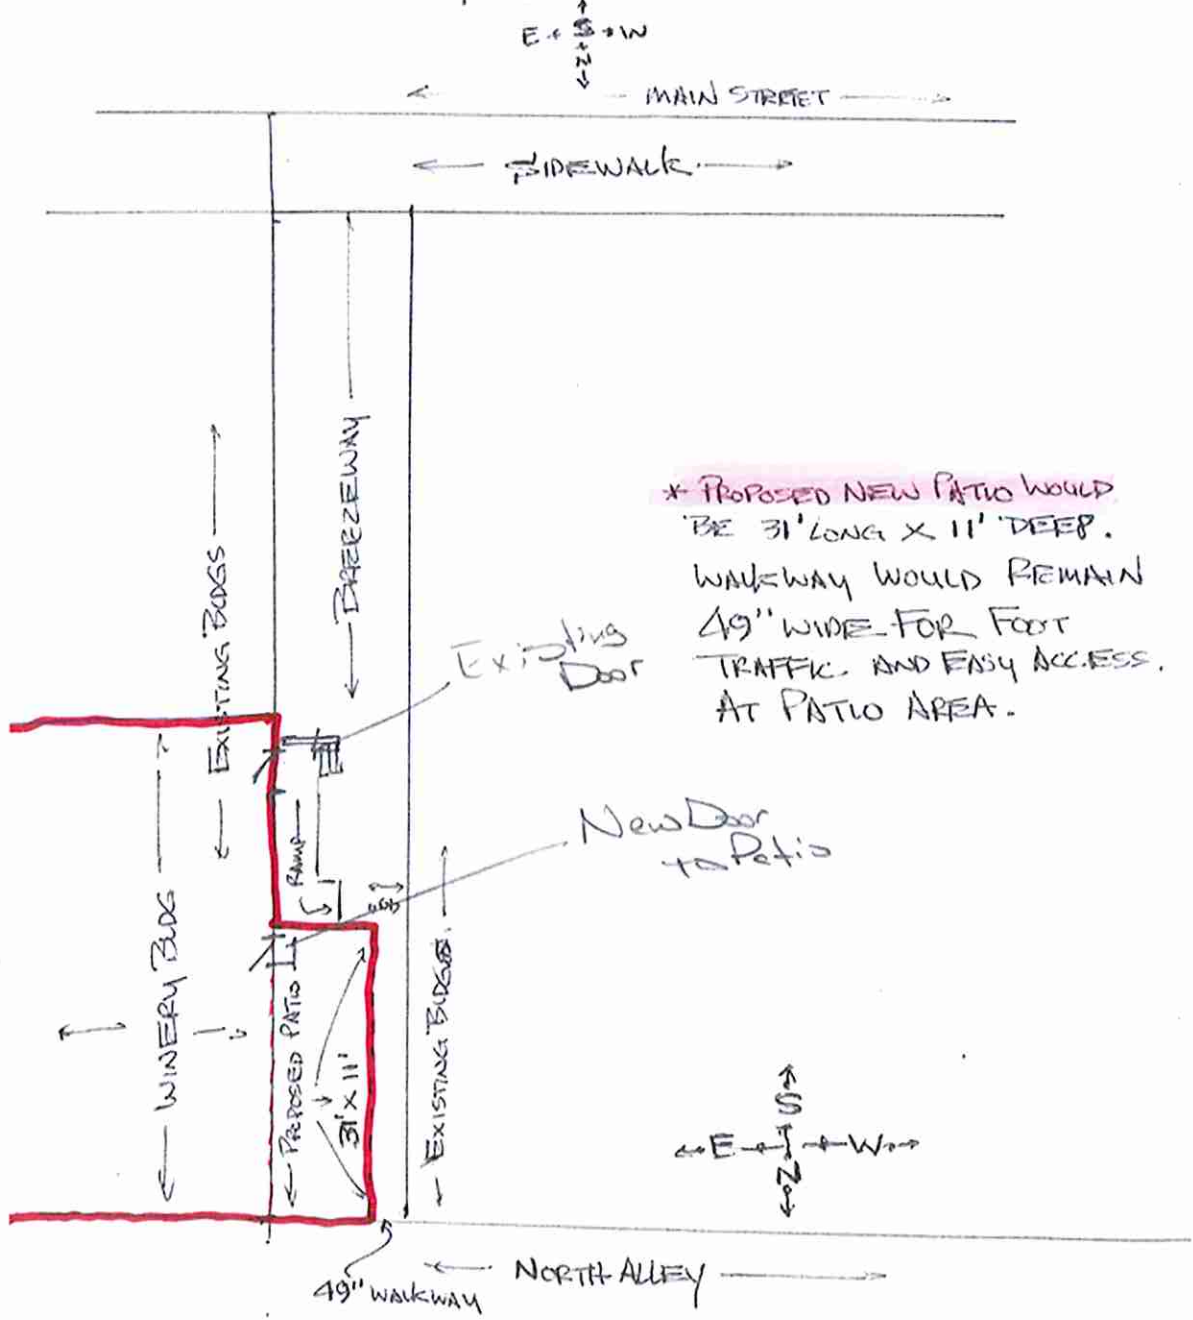 E S W
N
MAIN STREET
SIDEWALK
BREEZEWAY
EXISTING BLDGS
* PROPOSED NEW PATIO WOULD
BE 31' LONG X 11' DEEP.
WALKWAY WOULD REMAIN
49" WIDE FOR FOOT
TRAFFIC AND EASY ACCESS.
AT PATIO AREA.
Existing
Door
New Door
to Patio
RAMP
WINERY BLDG
PROPOSED PATIO
31' X 11'
EXISTING BLDGS
S
E W
N
49" WALKWAY
NORTH ALLEY